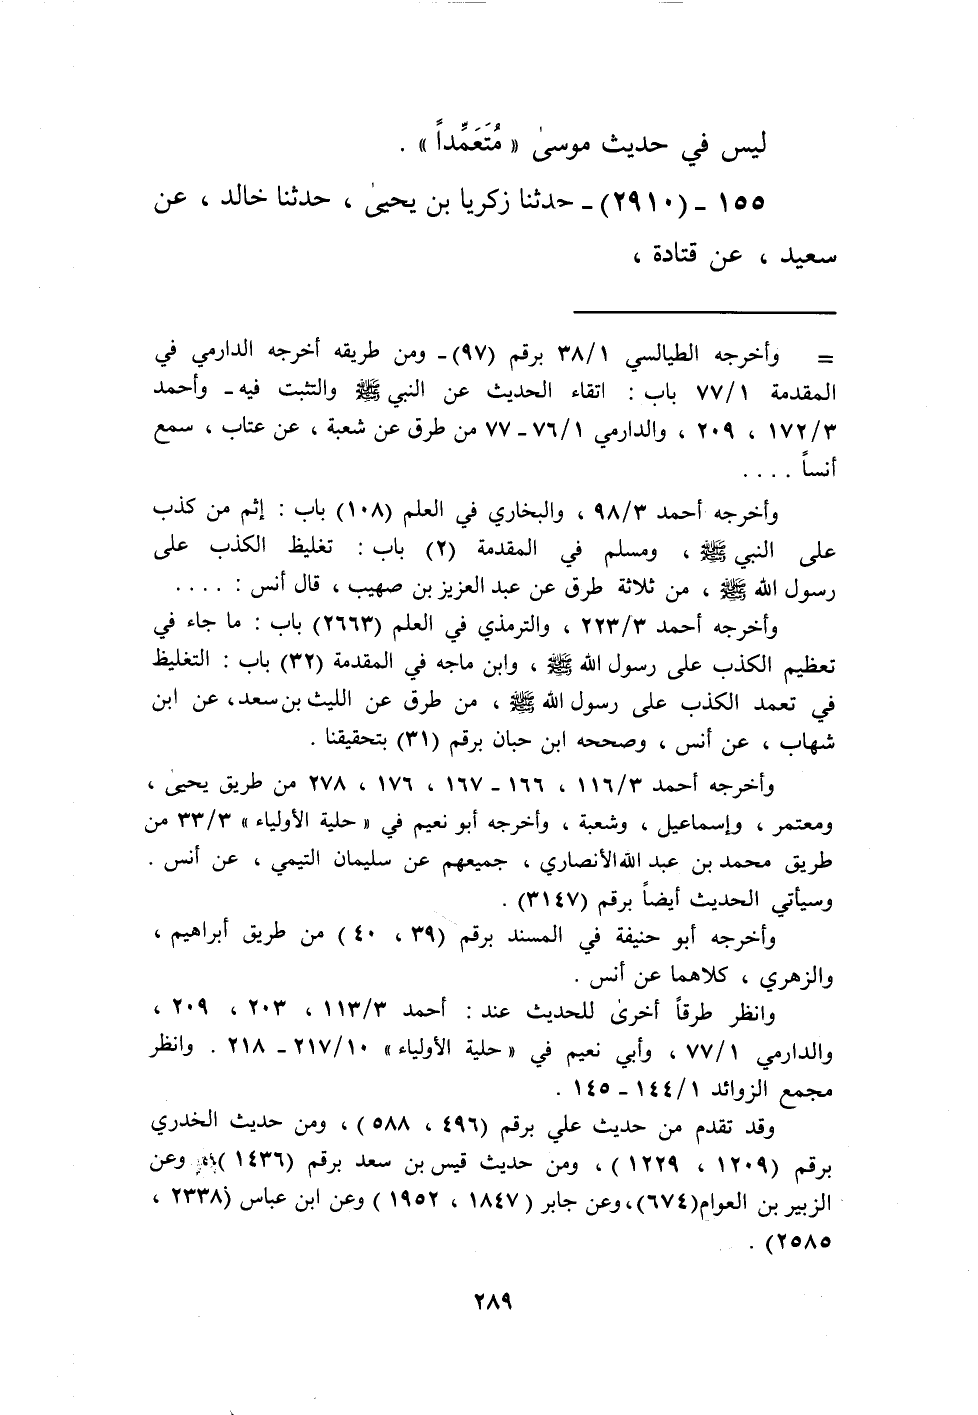 ليس في حديث موسىٰ « مُتَعَمِّداً » .
١٥٥ ـ (٢٩١٠) ـ حدثنا زكريا بن يحيىٰ ، حدثنا خالد ، عن
سعيد ، عن قتادة ،
= وأخرجه الطيالسي ٣٨/١ برقم (٩٧) ـ ومن طريقه أخرجه الدارمي في
المقدمة ٧٧/١ باب : اتقاء الحديث عن النبي ﷺ والتثبت فيه ـ وأحمد
١٧٢/٣ ، ٢٠٩ ، والدارمي ٧٦/١ ـ ٧٧ من طرق عن شعبة ، عن عتاب ، سمع
أنساً . . . .
وأخرجه أحمد ٩٨/٣ ، والبخاري في العلم (١٠٨) باب : إثم من كذب
على النبي ﷺ ، ومسلم في المقدمة (٢) باب : تغليظ الكذب على
رسول الله ﷺ ، من ثلاثة طرق عن عبد العزيز بن صهيب ، قال أنس : . . . .
وأخرجه أحمد ٢٢٣/٣ ، والترمذي في العلم (٢٦٦٣) باب : ما جاء في
تعظيم الكذب على رسول الله ﷺ ، وابن ماجه في المقدمة (٣٢) باب : التغليظ
في تعمد الكذب على رسول الله ﷺ ، من طرق عن الليث بن سعد ، عن ابن
شهاب ، عن أنس ، وصححه ابن حبان برقم (٣١) بتحقيقنا .
وأخرجه أحمد ١١٦/٣ ، ١٦٦ ـ ١٦٧ ، ١٧٦ ، ٢٧٨ من طريق يحيىٰ ،
ومعتمر ، وإسماعيل ، وشعبة ، وأخرجه أبو نعيم في « حلية الأولياء » ٣٣/٣ من
طريق محمد بن عبد الله الأنصاري ، جميعهم عن سليمان التيمي ، عن أنس .
وسيأتي الحديث أيضاً برقم (٣١٤٧) .
وأخرجه أبو حنيفة في المسند برقم (٣٩ ، ٤٠) من طريق أبراهيم ،
والزهري ، كلاهما عن أنس .
وانظر طرقاً أخرىٰ للحديث عند : أحمد ١١٣/٣ ، ٢٠٣ ، ٢٠٩ ،
والدارمي ٧٧/١ ، وأبي نعيم في « حلية الأولياء » ٢١٧/١٠ ـ ٢١٨ . وانظر
مجمع الزوائد ١٤٤/١ ـ ١٤٥ .
وقد تقدم من حديث علي برقم (٤٩٦ ، ٥٨٨) ، ومن حديث الخدري
برقم (١٢٠٩ ، ١٢٢٩) ، ومن حديث قيس بن سعد برقم (١٤٣٦) وعن
الزبير بن العوام (٦٧٤) ، وعن جابر (١٨٤٧ ، ١٩٥٢) وعن ابن عباس (٢٣٣٨ ،
٢٥٨٥) .
٢٨٩